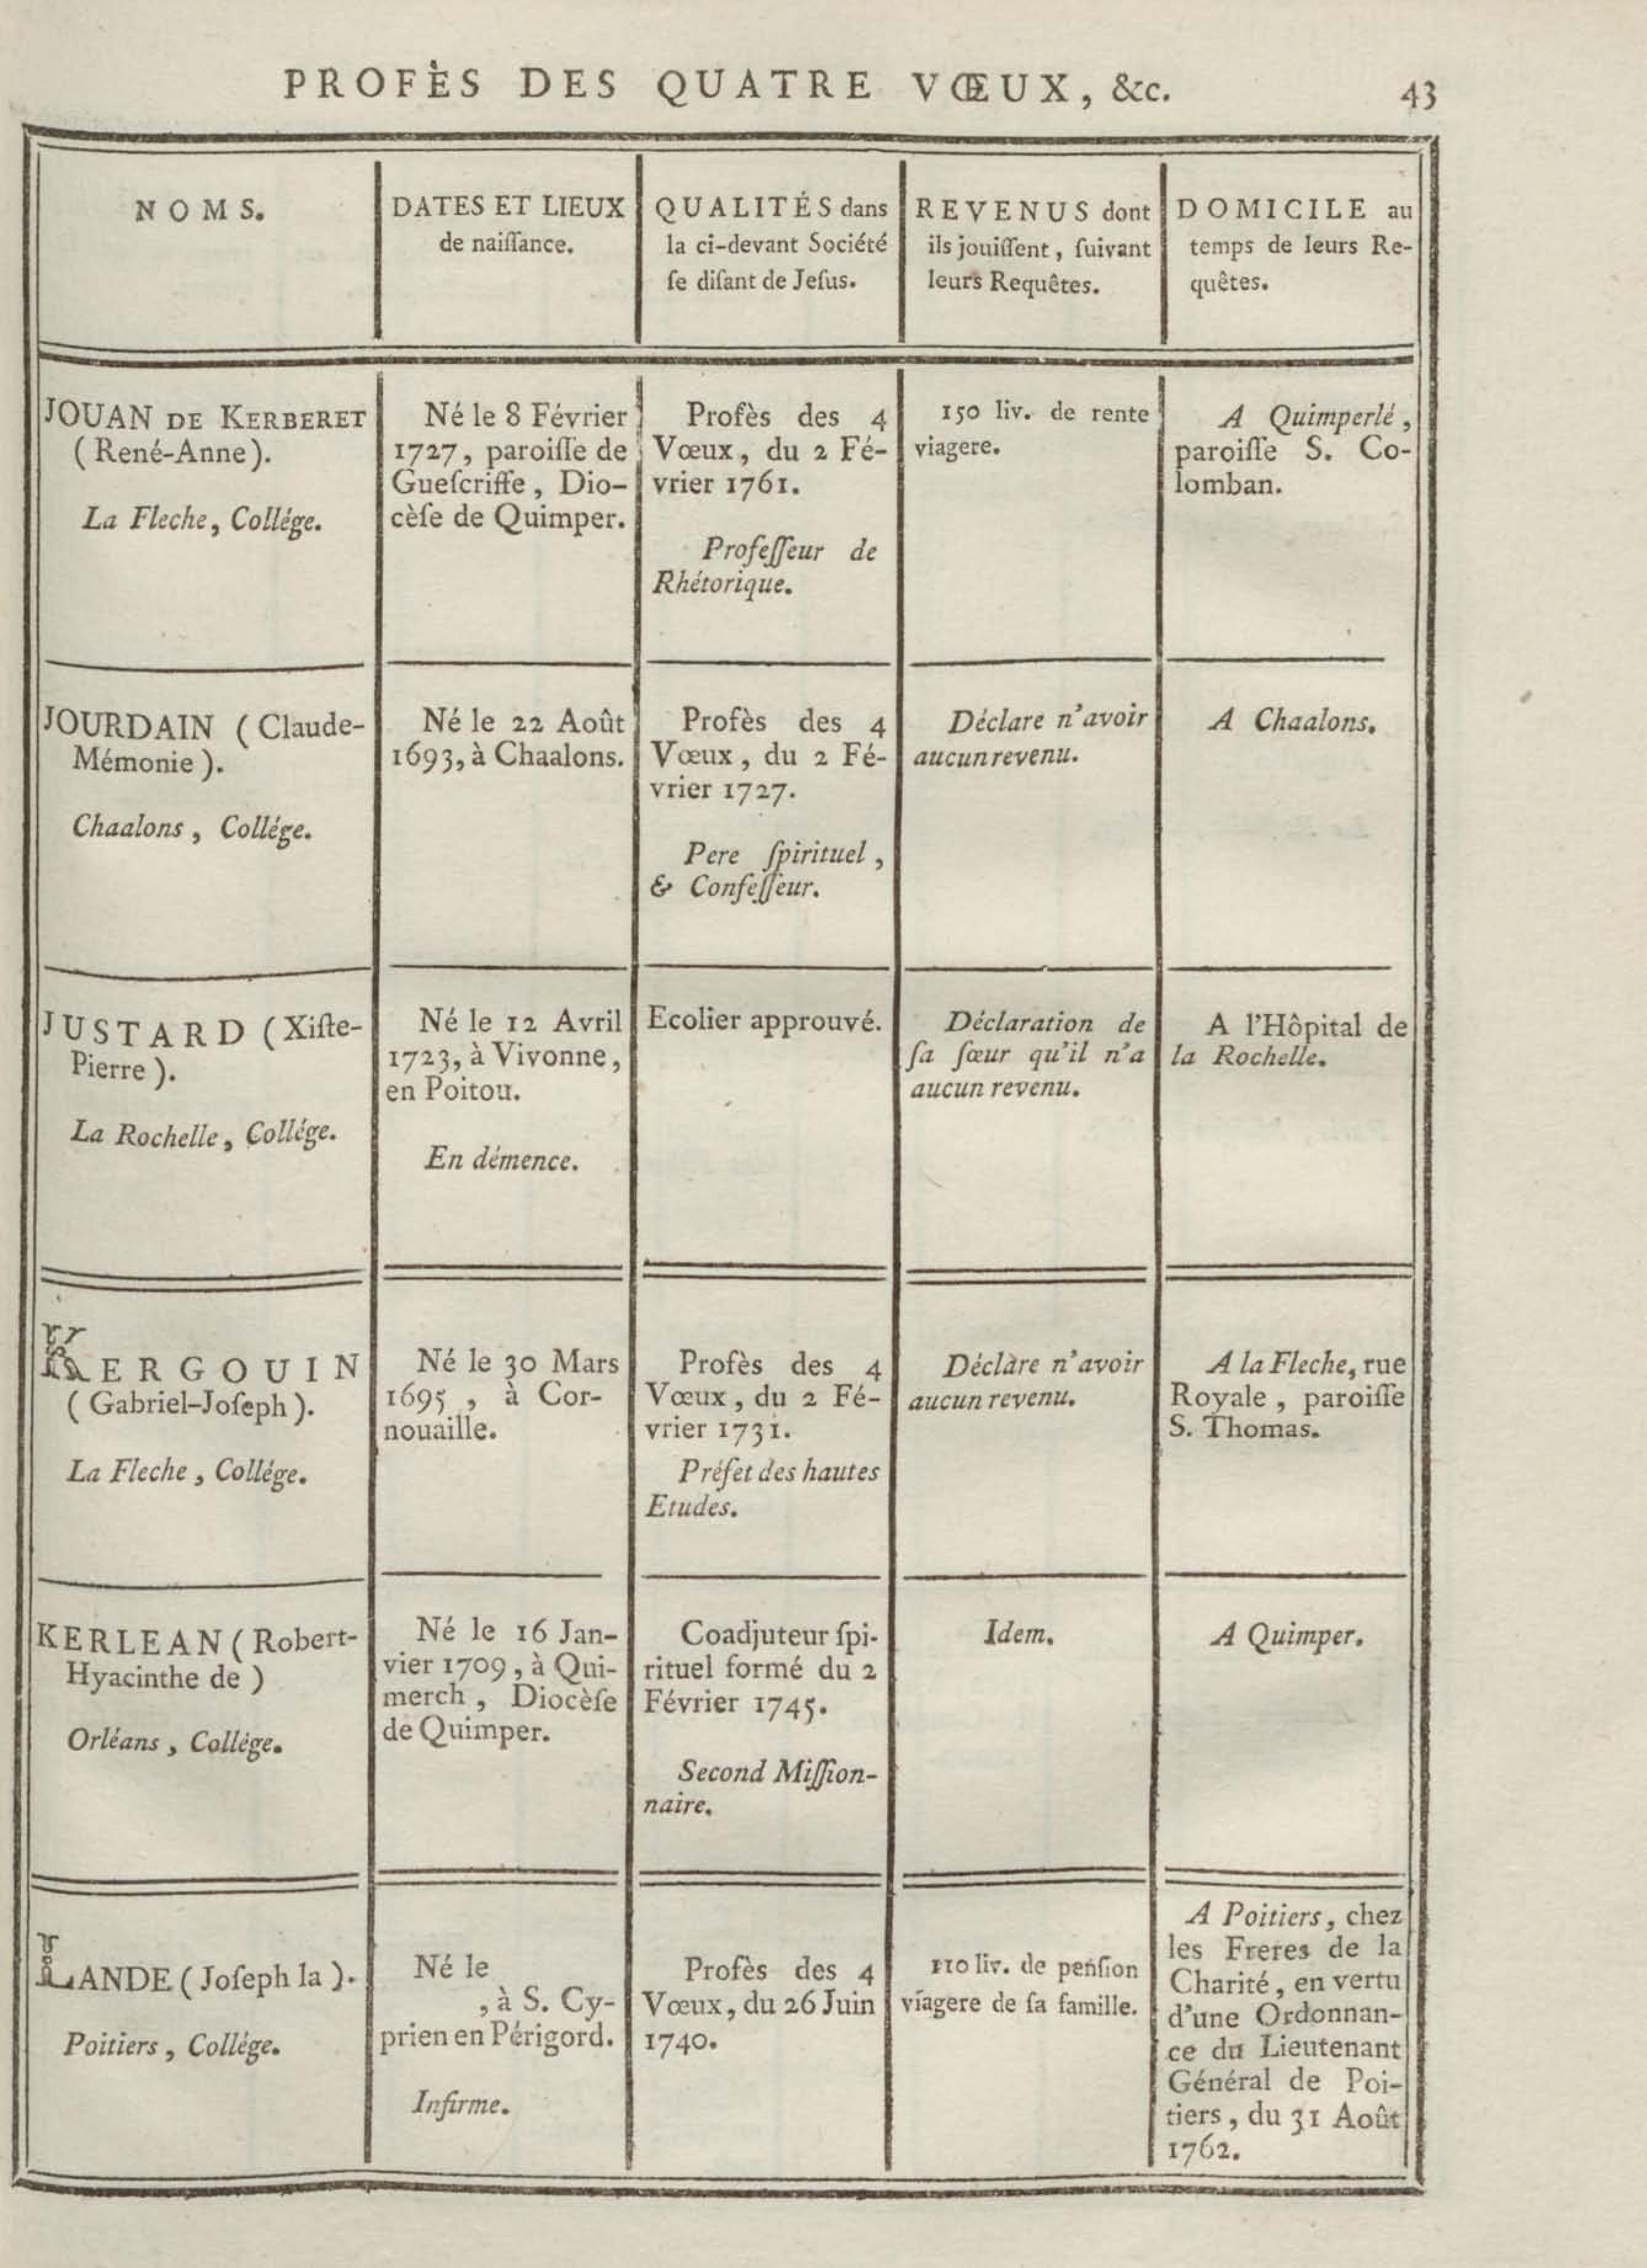 PROFÈS DES QUATRE VŒUX, &c. 43
NOMS.
DATES ET LIEUX
de naiſſance.
QUALITÉS dans
la ci-devant Société
ſe diſant de Jeſus.
REVENUS dont
ils jouiſſent, ſuivant
leurs Requêtes.
DOMICILE au
temps de leurs Re-
quêtes.
JOUAN DE KERBERET
(René-Anne).
La Fleche, Collége.
Né le 8 Février
1727, paroiſſe de
Gueſcriffe, Dio-
cèſe de Quimper.
Profès des 4
Vœux, du 2 Fé-
vrier 1761.
Profeſſeur de
Rhétorique.
150 liv. de rente
viagere.
A Quimperlé,
paroiſſe S. Co-
lomban.
JOURDAIN (Claude-
Mémonie).
Chaalons, Collége.
Né le 22 Août
1693, à Chaalons.
Profès des 4
Vœux, du 2 Fé-
vrier 1727.
Pere ſpirituel,
& Confeſſeur.
Déclare n'avoir
aucun revenu.
A Chaalons.
JUSTARD (Xiſte-
Pierre).
La Rochelle, Collége.
Né le 12 Avril
1723, à Vivonne,
en Poitou.
En démence.
Ecolier approuvé.
Déclaration de
ſa ſœur qu'il n'a
aucun revenu.
A l'Hôpital de
la Rochelle.
KERGOUIN
(Gabriel-Joſeph).
La Fleche, Collége.
Né le 30 Mars
1695, à Cor-
nouaille.
Profès des 4
Vœux, du 2 Fé-
vrier 1731.
Préfet des hautes
Etudes.
Déclare n'avoir
aucun revenu.
A la Fleche, rue
Royale, paroiſſe
S. Thomas.
KERLEAN (Robert-
Hyacinthe de)
Orléans, Collége.
Né le 16 Jan-
vier 1709, à Qui-
merch, Diocèſe
de Quimper.
Coadjuteur ſpi-
rituel formé du 2
Février 1745.
Second Miſſion-
naire.
Idem.
A Quimper.
LANDE (Joſeph la).
Poitiers, Collége.
Né le
, à S. Cy-
prien en Périgord.
Infirme.
Profès des 4
Vœux, du 26 Juin
1740.
110 liv. de penſion
viagere de ſa famille.
A Poitiers, chez
les Freres de la
Charité, en vertu
d'une Ordonnan-
ce du Lieutenant
Général de Poi-
tiers, du 31 Août
1762.